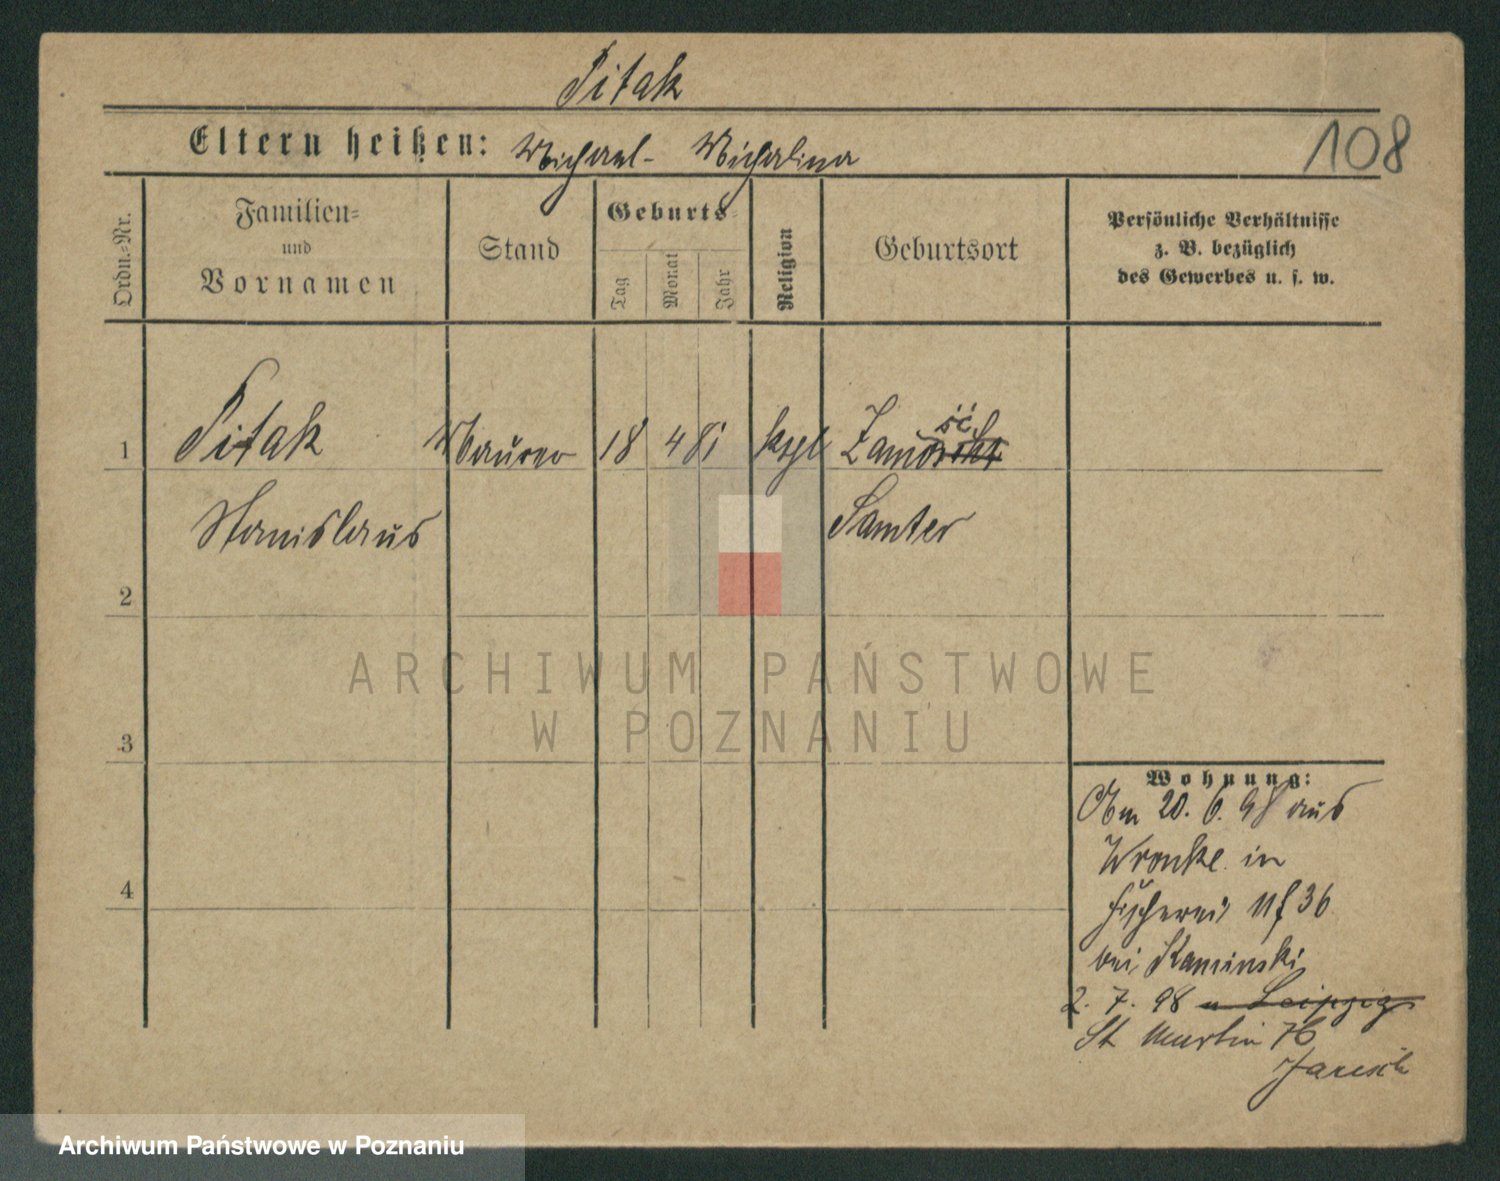 Pitak
Eltern heißen: Michael - Michalina
108
Ordn.=Nr.
Familien=
und
Vornamen
Stand
Geburts=
Tag
Monat
Jahr
Religion
Geburtsort
Persönliche Verhältnisse
z. B. bezüglich
des Gewerbes u. s. w.
1 Pitak Maurer 18 4 81 ktgl Zamość
Stanislaus Samter
2
3
4
Wohnung:
Am 20. 6. 98 aus
Wronke in
Fischerei 11 f 36
bei Kaminski
2. 7. 98 n Leipzig
St Martin 76
ARCHIWUM PAŃSTWOWE
W POZNANIU
Archiwum Państwowe w Poznaniu